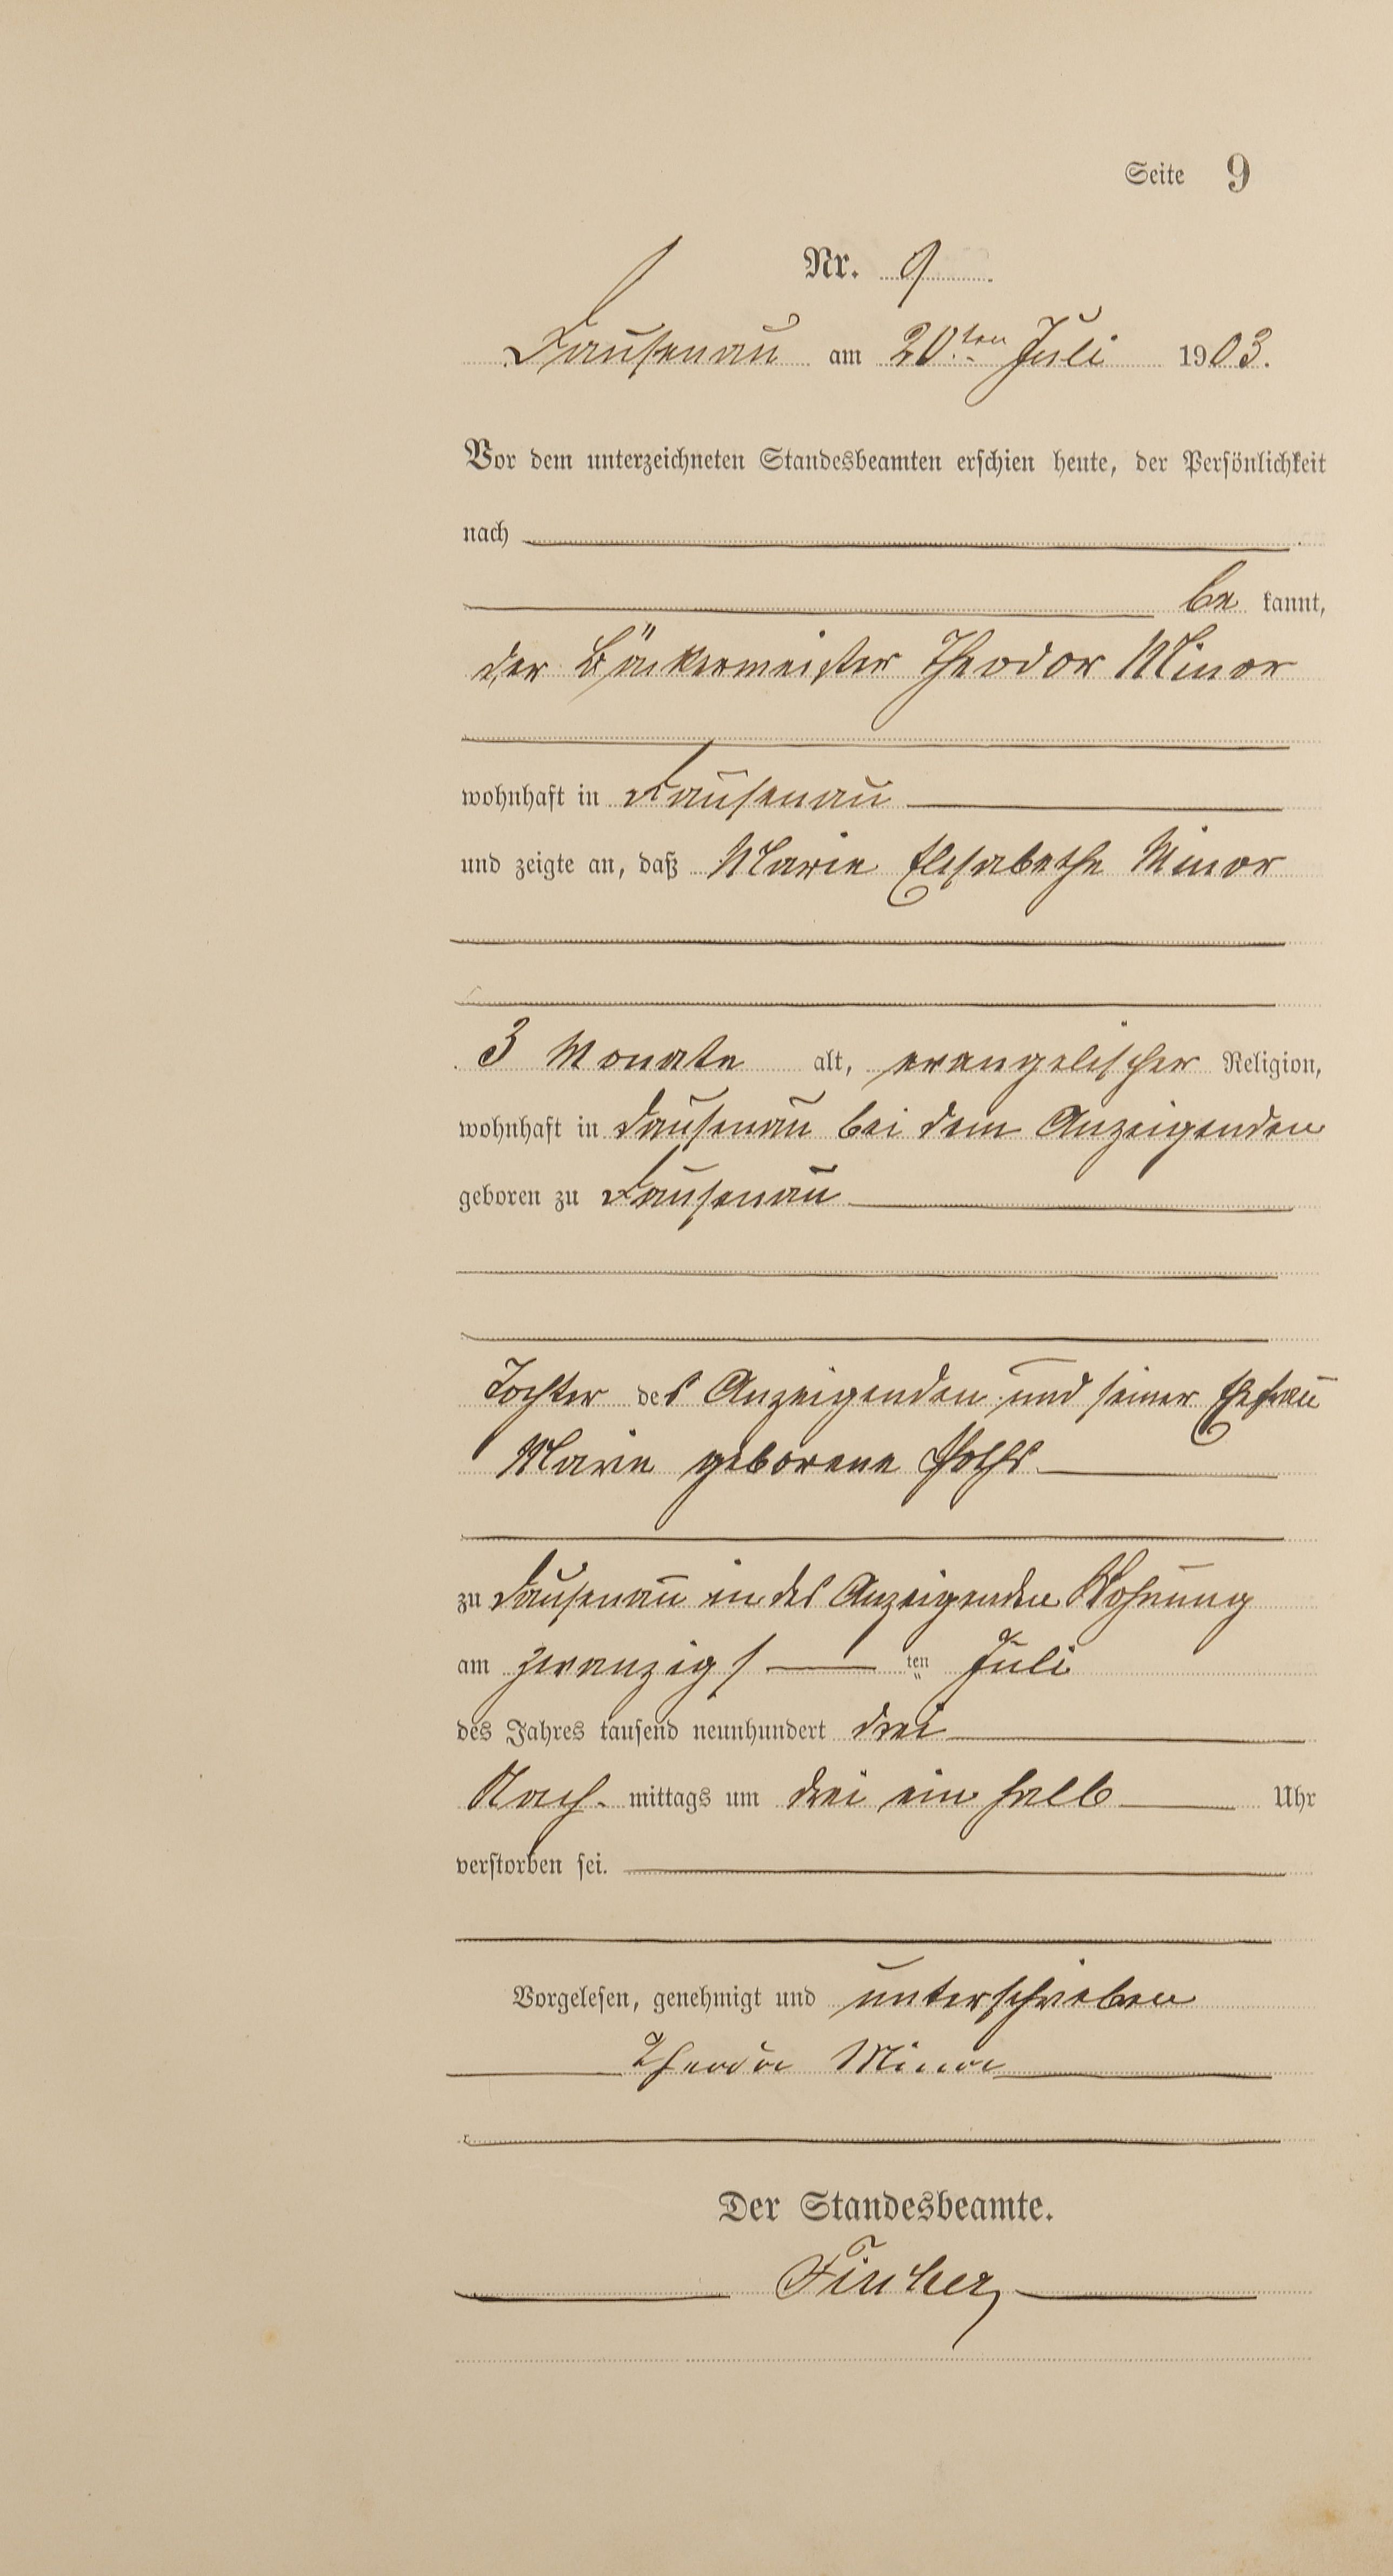 Seite 9
Nr. 9
Dausenau am 20ten Juli 1903.
Vor dem unterzeichneten Standesbeamten erschien heute, der Persönlichkeit
nach
be kannt,
der Bäckermeister Theodor Minor
wohnhaft in Dausenau
und zeigte an, daß Marie Elisabethe Minor
3 Monate alt, evangelischer Religion,
wohnhaft in Dausenau bei dem Anzeigenden
geboren zu Dausenau
Tochter des Anzeigenden und seiner Ehefrau
Marie geborene
zu Dausenau in des Anzeigenden Wohnung
am zwanzigsten Juli
des Jahres tausend neunhundert drei
Nach mittags um drei ein halb Uhr
verstorben sei.
Vorgelesen, genehmigt und unterschrieben
Theodor Minor
Der Standesbeamte.